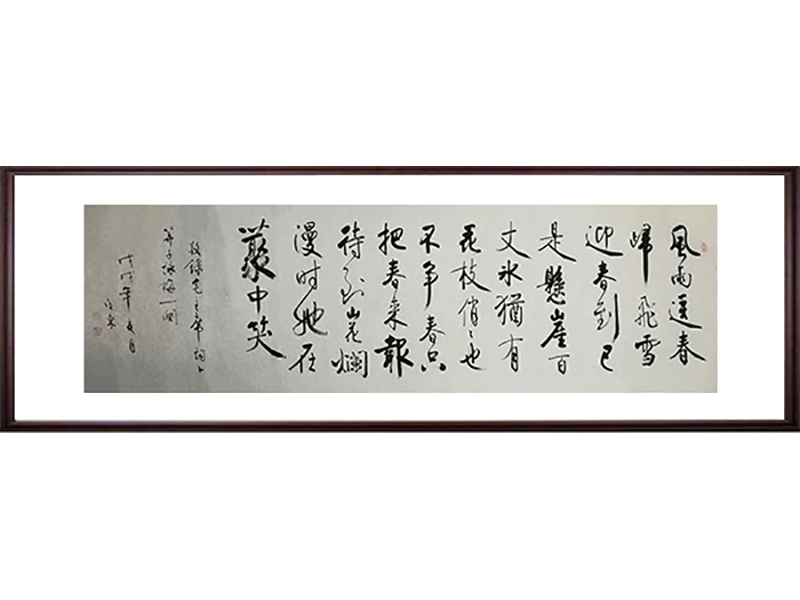 風雨送春
歸飛雪
迎春到已
是懸崖百
丈冰猶有
花枝俏〻也
不争春只
把春来報
待到山花爛
漫时她在
叢中笑
毛主席詞卜
算子咏梅一闋
年 月